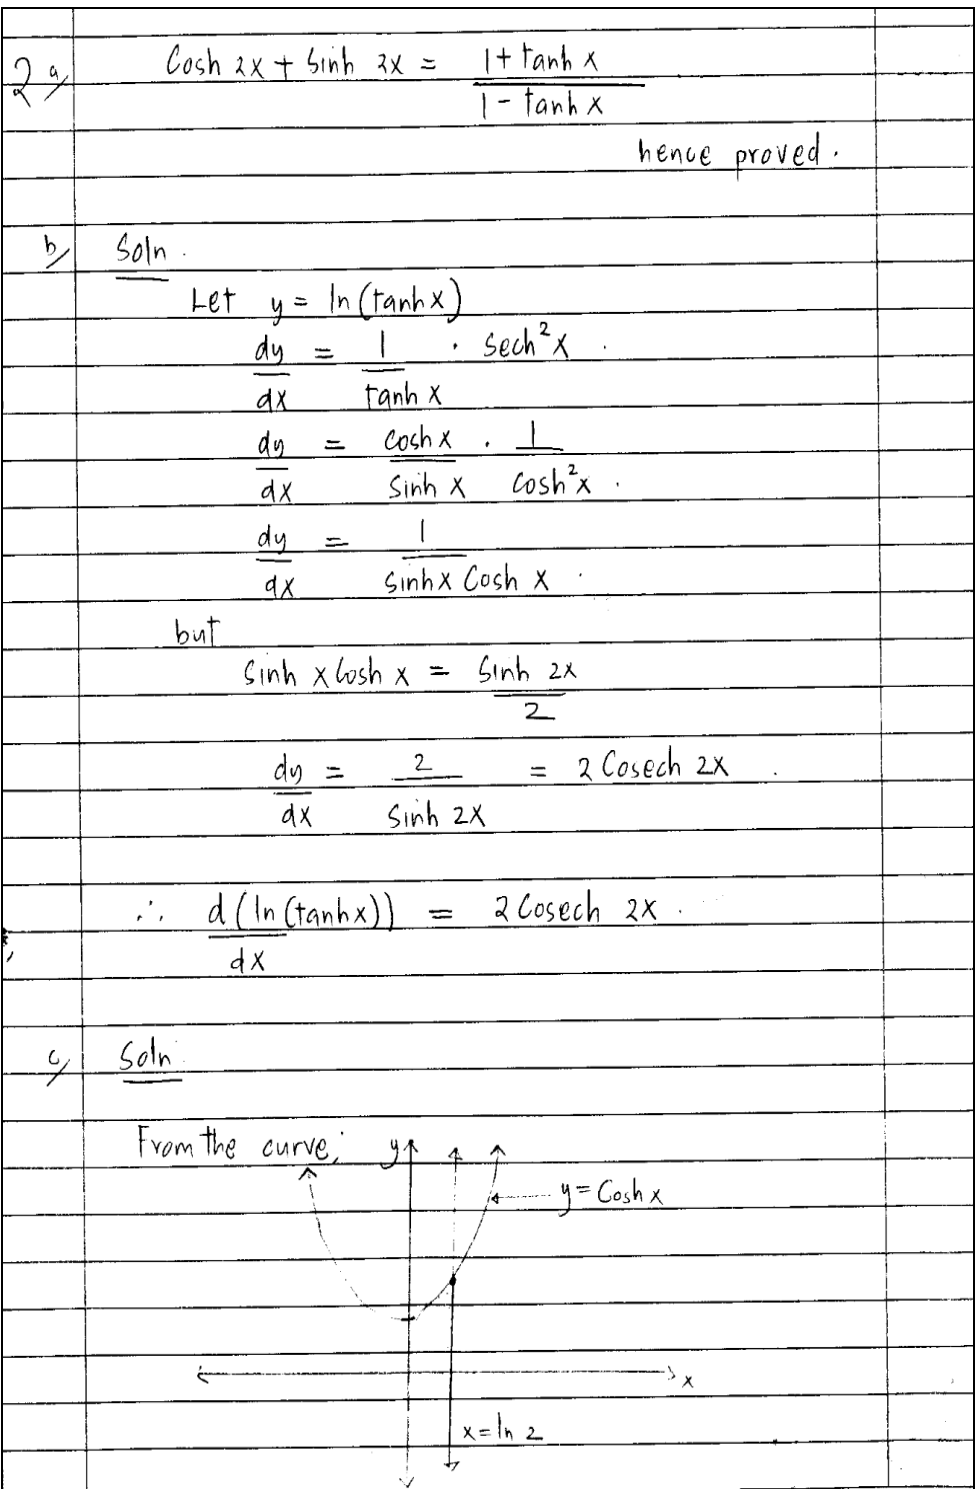 2 a/ Cosh 2x + Sinh 2x = 1 + tanh x
1 - tanh x
hence proved.
b/ Soln.
Let y = ln (tanh x)
dy = 1 . Sech²x .
dx tanh x
dy = cosh x . 1
dx Sinh x Cosh²x .
dy = 1
dx Sinh x Cosh x .
but
Sinh x Cosh x = Sinh 2x
2
dy = 2 = 2 Cosech 2x .
dx Sinh 2x
∴ d (ln (tanh x)) = 2 Cosech 2x .
dx
c/ Soln
From the curve; y
y = Cosh x
x
x = ln 2